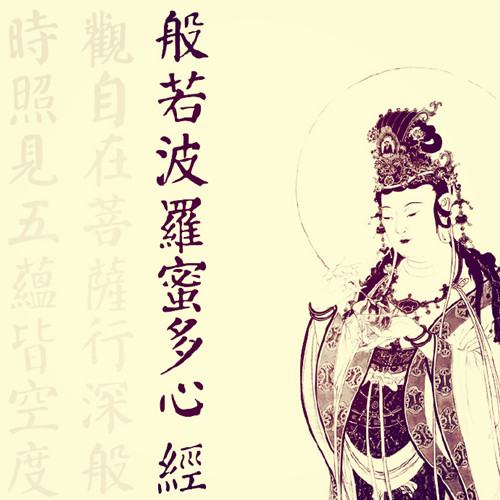 般若波羅蜜多心經
觀自在菩薩行深般
時照見五蘊皆空度